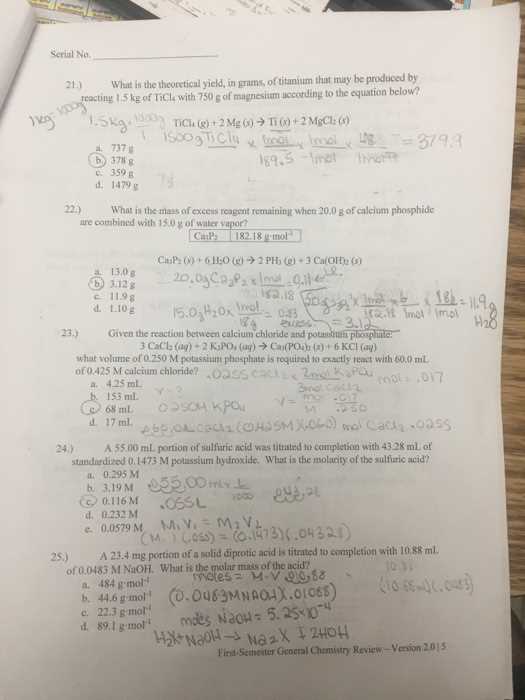 Serial No.
21.) What is the theoretical yield, in grams, of titanium that may be produced by
reacting 1.5 kg of TiCl₄ with 750 g of magnesium according to the equation below?
1kg = 1000g
1.5kg · 1000g
1
TiCl₄ (g) + 2 Mg (s) → Ti (s) + 2 MgCl₂ (s)
1500g TiCl4 x 1mol x 1mol x 48 = 379.9
189.5 1mol 1mol
a. 737 g
b. 378 g
c. 359 g
d. 1479 g
22.) What is the mass of excess reagent remaining when 20.0 g of calcium phosphide
are combined with 15.0 g of water vapor?
Ca₃P₂ 182.18 g·mol⁻¹
Ca₃P₂ (s) + 6 H₂O (g) → 2 PH₃ (g) + 3 Ca(OH)₂ (s)
a. 13.0 g
b. 3.12 g
c. 11.9 g
d. 1.10 g
20.0g Ca3P2 x 1mol = 0.11
182.18
15.0g H2O x 1mol = 0.83
18g
excess
x 1mol x 6 x 18 = 11.9g H2O
182.18 1mol 1mol
= 3.12
23.) Given the reaction between calcium chloride and potassium phosphate:
3 CaCl₂ (aq) + 2 K₃PO₄ (aq) → Ca₃(PO₄)₂ (s) + 6 KCl (aq)
what volume of 0.250 M potassium phosphate is required to exactly react with 60.0 mL
of 0.425 M calcium chloride?
.0255 CaCl2 x 2mol K3PO4
3mol CaCl2
mol = .017
a. 4.25 mL
b. 153 mL
c. 68 mL
d. 17 mL
V = ?
0.250M KPO4
V = mol = .017
M .250
CaCl2 (0.425M)(.060) mol CaCl2 = .0255
24.) A 55.00 mL portion of sulfuric acid was titrated to completion with 43.28 mL of
standardized 0.1473 M potassium hydroxide. What is the molarity of the sulfuric acid?
a. 0.295 M
b. 3.19 M
c. 0.116 M
d. 0.232 M
e. 0.0579 M
55.00 mL x L
1000
.055L
M1V1 = M2V2
(M1)(.055) = (0.1473)(.04328)
25.) A 23.4 mg portion of a solid diprotic acid is titrated to completion with 10.88 mL
of 0.0483 M NaOH. What is the molar mass of the acid?
a. 484 g·mol⁻¹
b. 44.6 g·mol⁻¹
c. 22.3 g·mol⁻¹
d. 89.1 g·mol⁻¹
moles = M·V
(0.0483M NaOH)(.01088)
moles NaOH = 5.25x10⁻⁴
(10.88)(.0483)
First-Semester General Chemistry Review – Version 2.015